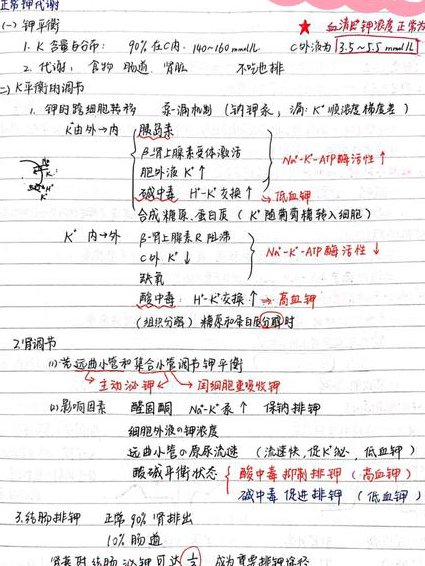 正常钾代谢
(一) 钾平衡
★ 血清K⁺钾浓度正常为
1. K 含量与分布: 90% 在C内. 140~160 mmol/L C外液为 3.5~5.5 mmol/L
2. 代谢: 食物 肠道 肾脏 不吃也排
二) K平衡的调节
1. 钾的跨细胞转移 泵-漏机制 (钠钾泵, 漏: K⁺顺浓度梯度差)
K⁺由外→内 胰岛素
β-肾上腺素受体激活
胞外液 K⁺ ↑
Na⁺-K⁺-ATP酶活性 ↑
碱中毒 H⁺-K⁺交换 ↑ ⇒ 低血钾
合成糖原、蛋白质 (K⁺随葡萄糖转入细胞)
K⁺ 内→外 β-肾上腺素R阻滞
C外 K⁺ ↓
Na⁺-K⁺-ATP酶活性 ↓
缺氧
酸中毒: H⁺-K⁺交换 ↑ ⇒ 高血钾
(组织分解) 糖原和蛋白质分解时
2. 肾调节
(1) 靠远曲小管和集合小管调节钾平衡
→ 主动泌钾 → 闰细胞重吸收钾
(2) 影响因素 醛固酮 Na⁺-K⁺泵 ↑ 保钠排钾
细胞外液的钾浓度
远曲小管的原尿流速 (流速快, 促K⁺泌, 低血钾)
酸碱平衡状态 酸中毒 抑制排钾 (高血钾)
碱中毒 促进排钾 (低血钾)
3. 结肠排钾 正常 90% 肾排出
10% 肠道
肾衰时 结肠泌钾可达 1/3 成为重要排钾途径